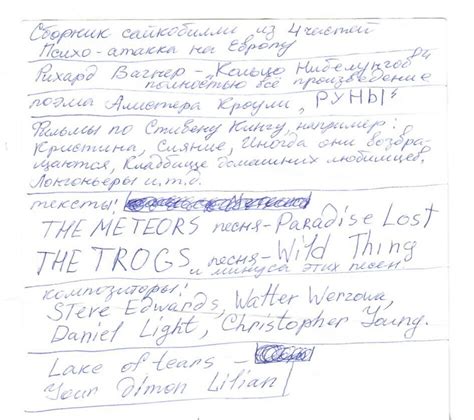 Сборник сайкобилли из 4 частей
Психо-атакка на Европу
Рихард Вагнер - „Кольцо Нибелунгов"
полностью всё произведение
поэма Алистера Кроули „РУНЫ"
Фильмы по Стивену Кингу, например:
Кристина, Сияние, Иногда они возвра-
щаются, Кладбище домашних любимцев,
Лонгоньеры и.т.д.
тексты!
THE METEORS песня-Paradise Lost
THE TROGS песня-Wild Thing
и минуса этих песен
композиторы!
Steve Edwards, Walter Werzowa,
Daniel Light, Christopher Young.
Lake of tears -
Your Dimon Lilian